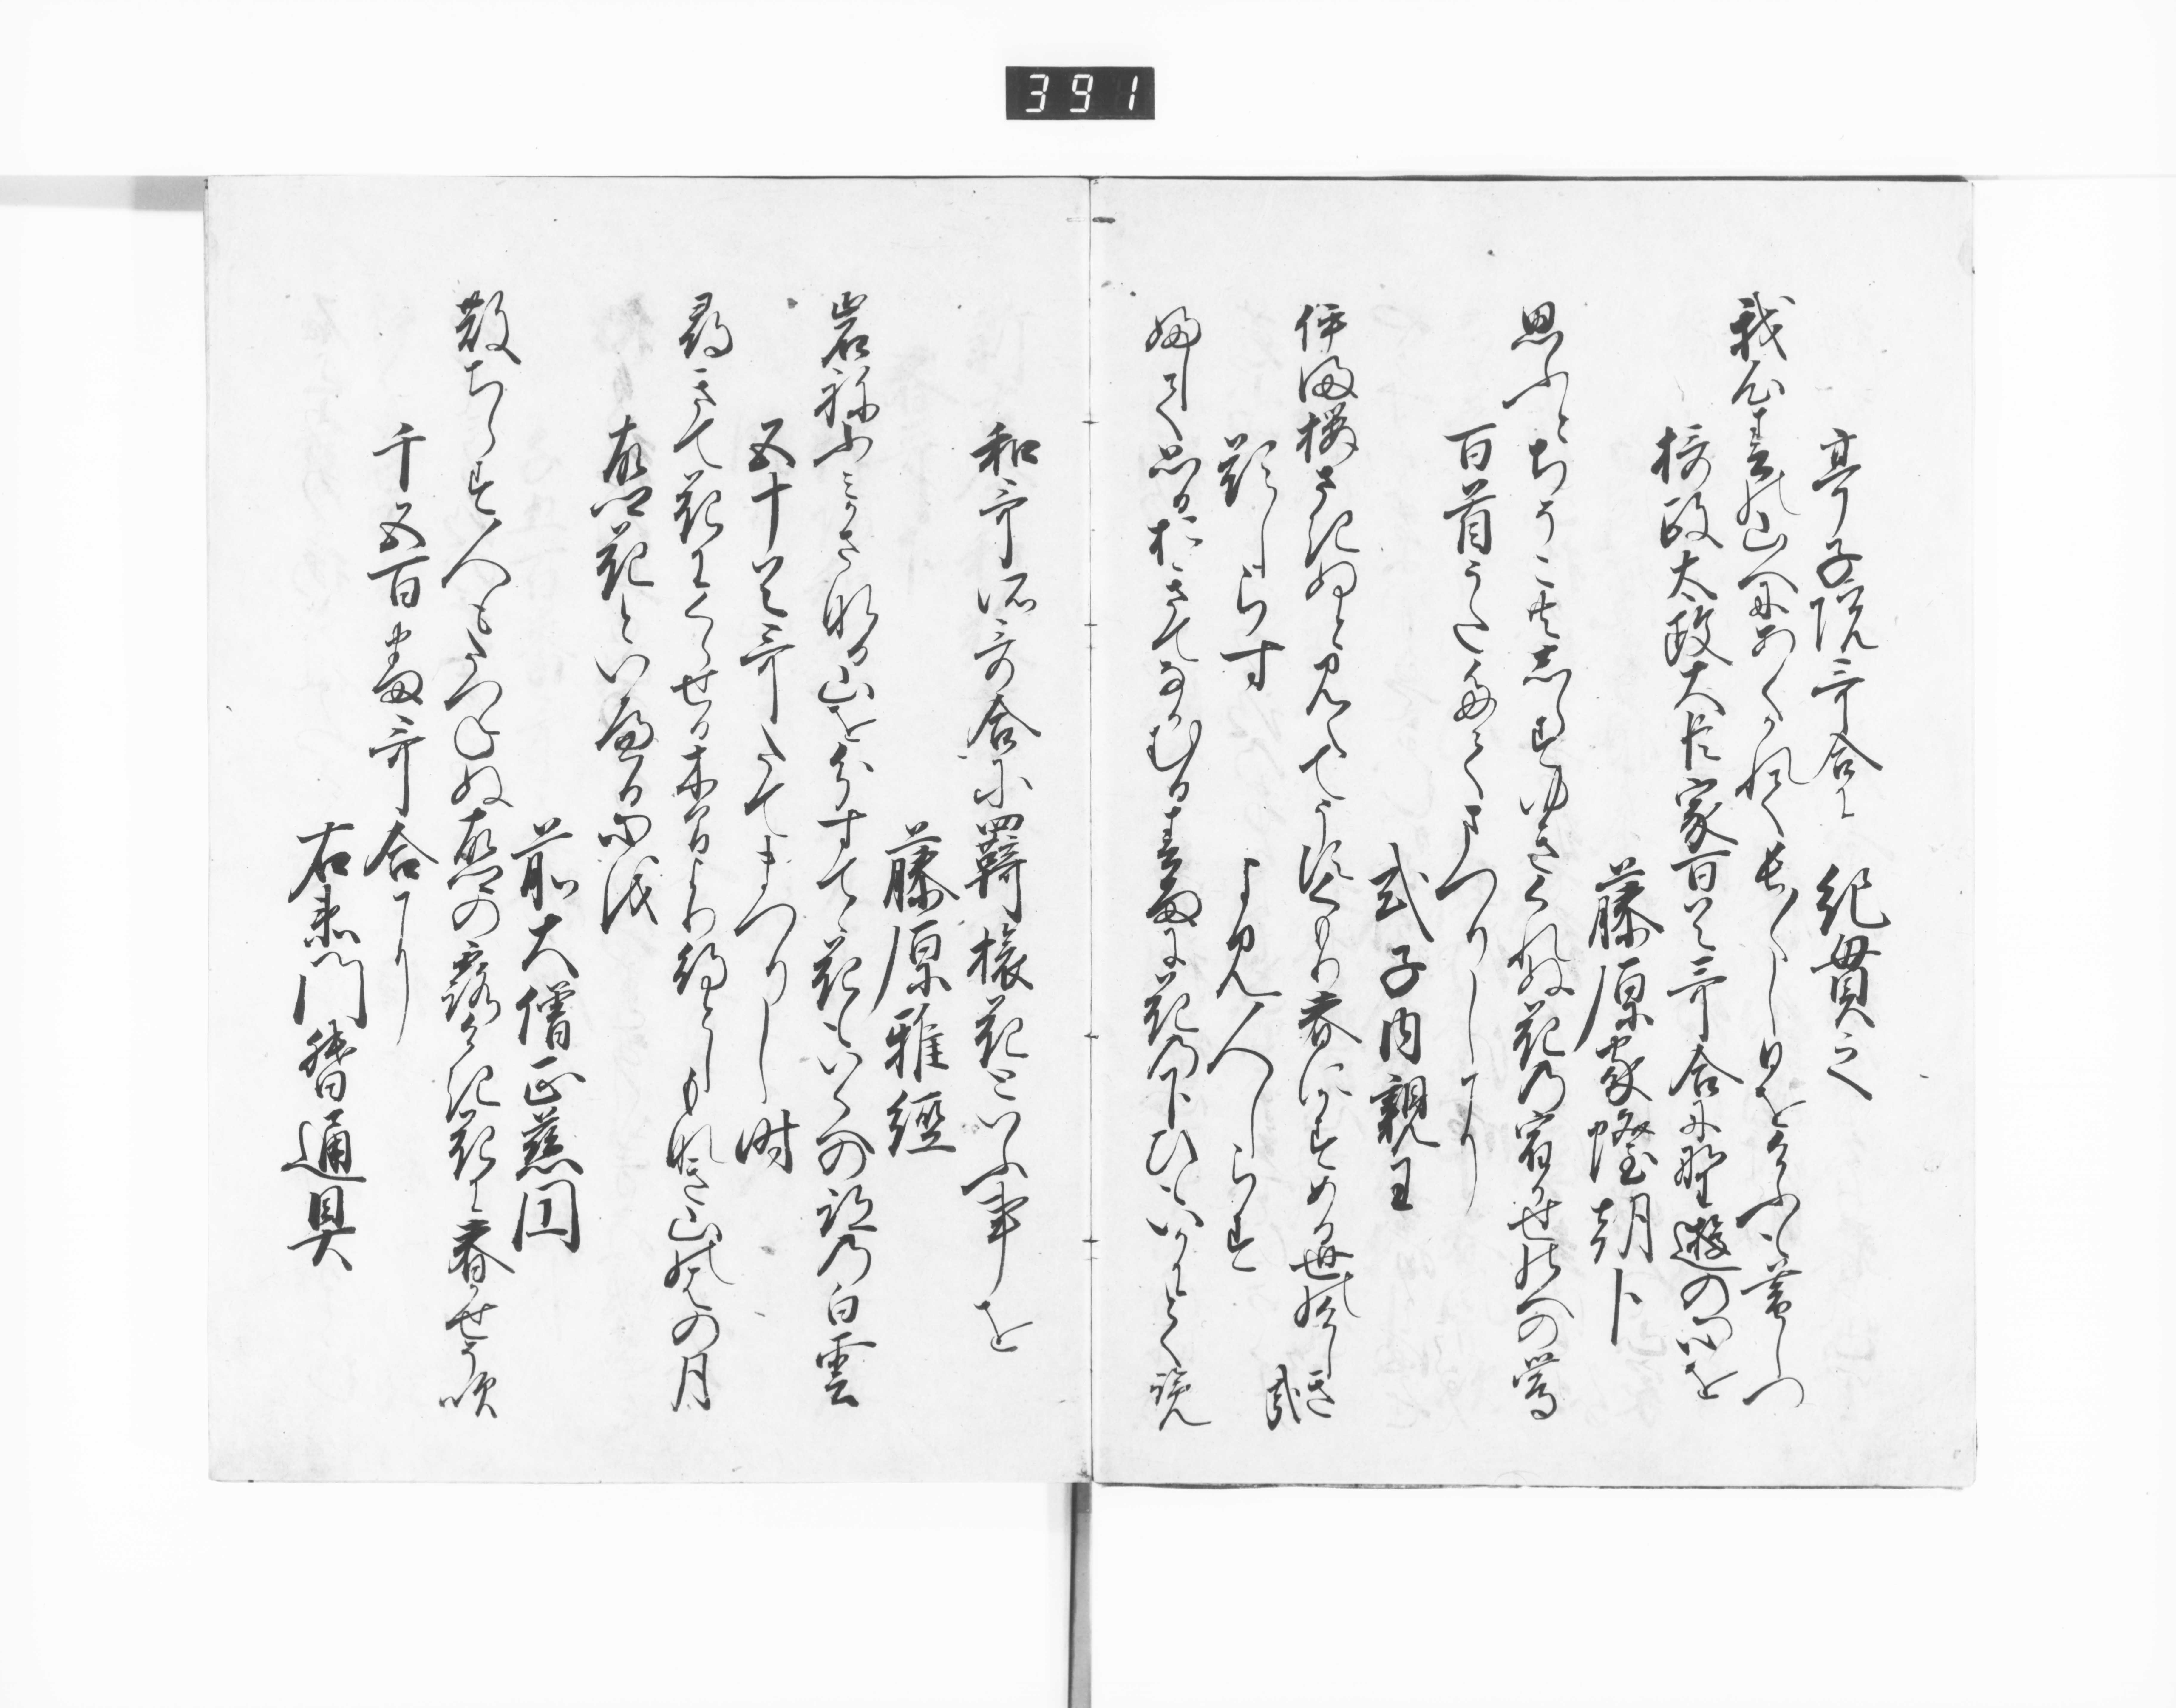 391
亭子院哥合に　紀貫之
我心春の山へにあくかれてなか〳〵し日をけふも暮しつ
摂政太政大臣家百首哥合に野遊の心を
藤原家隆朝卜
思ふとちそこ共志らすゆきくれぬ花の宿かせ野への鶯
百首うたたてまつりしに
式子内親王
伊ま桜さきぬと見えてうすくもり春にかすめる世のけしき哉
題しらす　よみ人しらす
ふして思ひおきてなかむる春雨に花の下ひもいかにとく覧
和哥所哥合に羇旅花といふ事を
藤原雅経
岩ねふみかさなる山を分すてゝ花もいくへの跡の白雲
五十首哥たてまつりし時
尋きて花にくらせる木間より待としもなき山のはの月
故郷花といへる心を
前大僧正慈円
散ちらす人もたつねぬ故郷の露けき花に春かせそ吹
千五百番哥合に
右衛門督通具